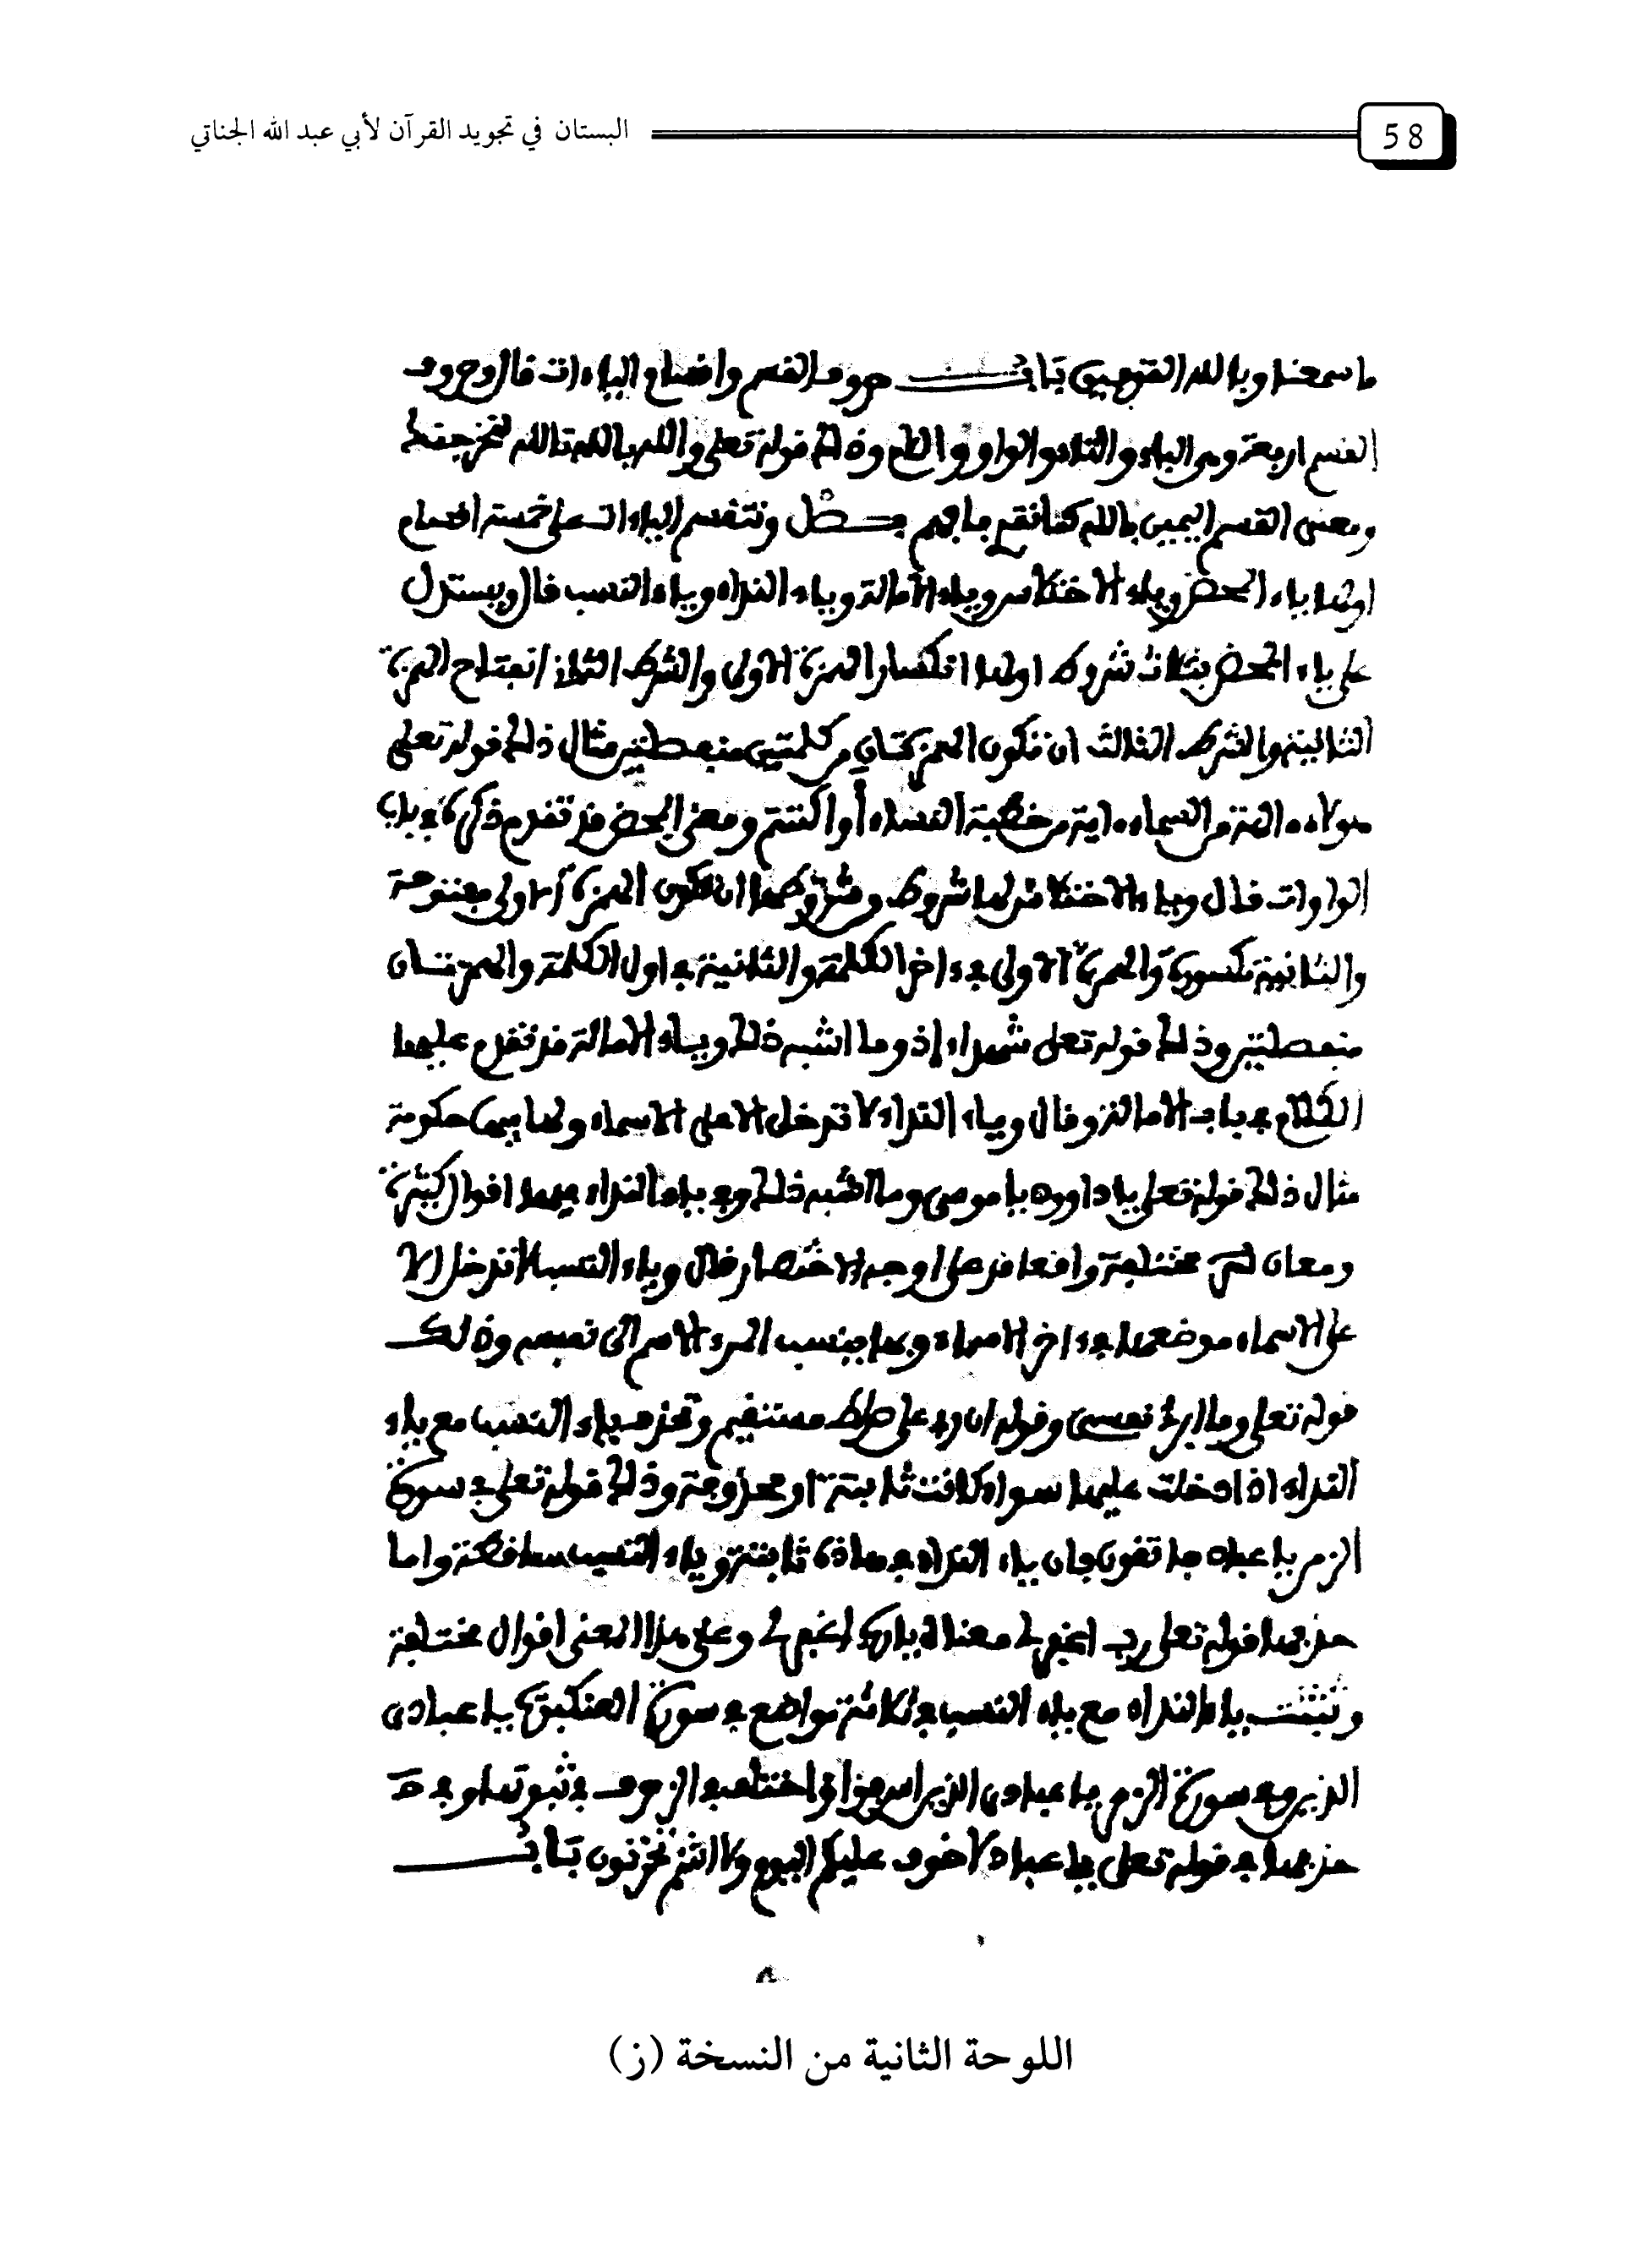 58
البستان في تجويد القرآن لأبي عبد الله الجناتي
ما سمعنا وبالله التوفيق باب حروف القسم واقسام الياءات قال وحروف
القسم اربعة وهي الباء والتاء والواو واللام وذلك قوله تعلى والله بالله تالله
ومعنى القسم اليمين بالله فصل وتنقسم الياءات على خمسة اقسام
اولها ياء المحض وياء الاختلاس وياء الامالة وياء النداء وياء النسب قال ويستدل
على ياء المحض بثلاث شروط اولها انكسار الهمزة الاولى والشرط الثاني انفتاح الهمزة
الثانية والشرط الثالث ان تكون الهمزتان من كلمتين منفصلتين مثال ذلك قوله تعلى
هؤلاء ءالهة من السماء ءاية من خطبة النساء أو اكننتم ومعنى المحض قد تقدم ذكره في باب
الواوات قال وياء الاختلاس لها شروط وشروطها ان تكون الهمزة الاولى مفتوحة
والثانية مكسورة والهمزة الاولى في ءاخر الكلمة والثانية في اول الكلمة والهمزتان
منفصلتين وذلك قوله تعلى شهداء اذ وما اشبه ذلك وياء الامالة قد تقدم عليها
الكلام في باب الامالة وقال وياء النداء لا تدخل الا على الاسماء
مثال ذلك قوله تعلى يا داوود يا موسى وما اشبه ذلك وفي ياء النداء فيها اقوال كثيرة
ومعان مختلفة على وجه الاختصار قال وياء النسب لا تدخل الا
على الاسماء موضعها في ءاخر الاسماء وبها ينسب المرء الاسم الى نفسه وذلك
قوله تعلى وما ابرئ نفسى وقوله ان ربي على صراط مستقيم وتحذف ياء النسب مع ياء
النداء اذا دخلت عليها سواء كانت ثابتة او محذوفة وذلك قوله تعلى في سورة
الزمر يا عباد فاتقون فان ياء النداء في هاذه ثابتة وياء النسب ساقطة واما
حذفها قوله تعلى رب اغفر لي معناه يا رب اغفر لي وعلى هذا المعنى اقوال مختلفة
وتثبت ياء النداء مع ياء النسب في ثلاثة مواضع في سورة العنكبوت يا عبادى
الذين وفي سورة الزمر يا عبادى الذين اسرفوا واختلف في الزخرف في ثبوتها وفي
حذفها في قوله تعلى يا عباد لا خوف عليكم اليوم ولا انتم تحزنون باب
اللوحة الثانية من النسخة (ز)